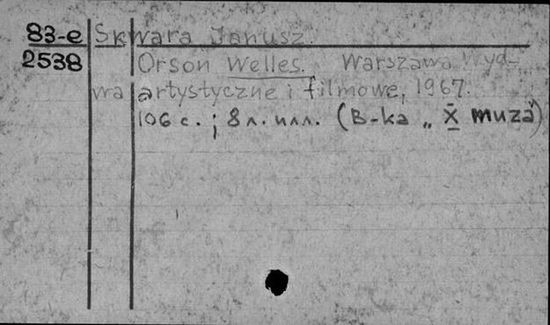 83-e Skwara Janusz.
2538 Orson Welles. Warszawa Wyd-
wa artystyczne i filmowe, 1967.
106 с. ; 8 л. илл. (B-ka „X muza")